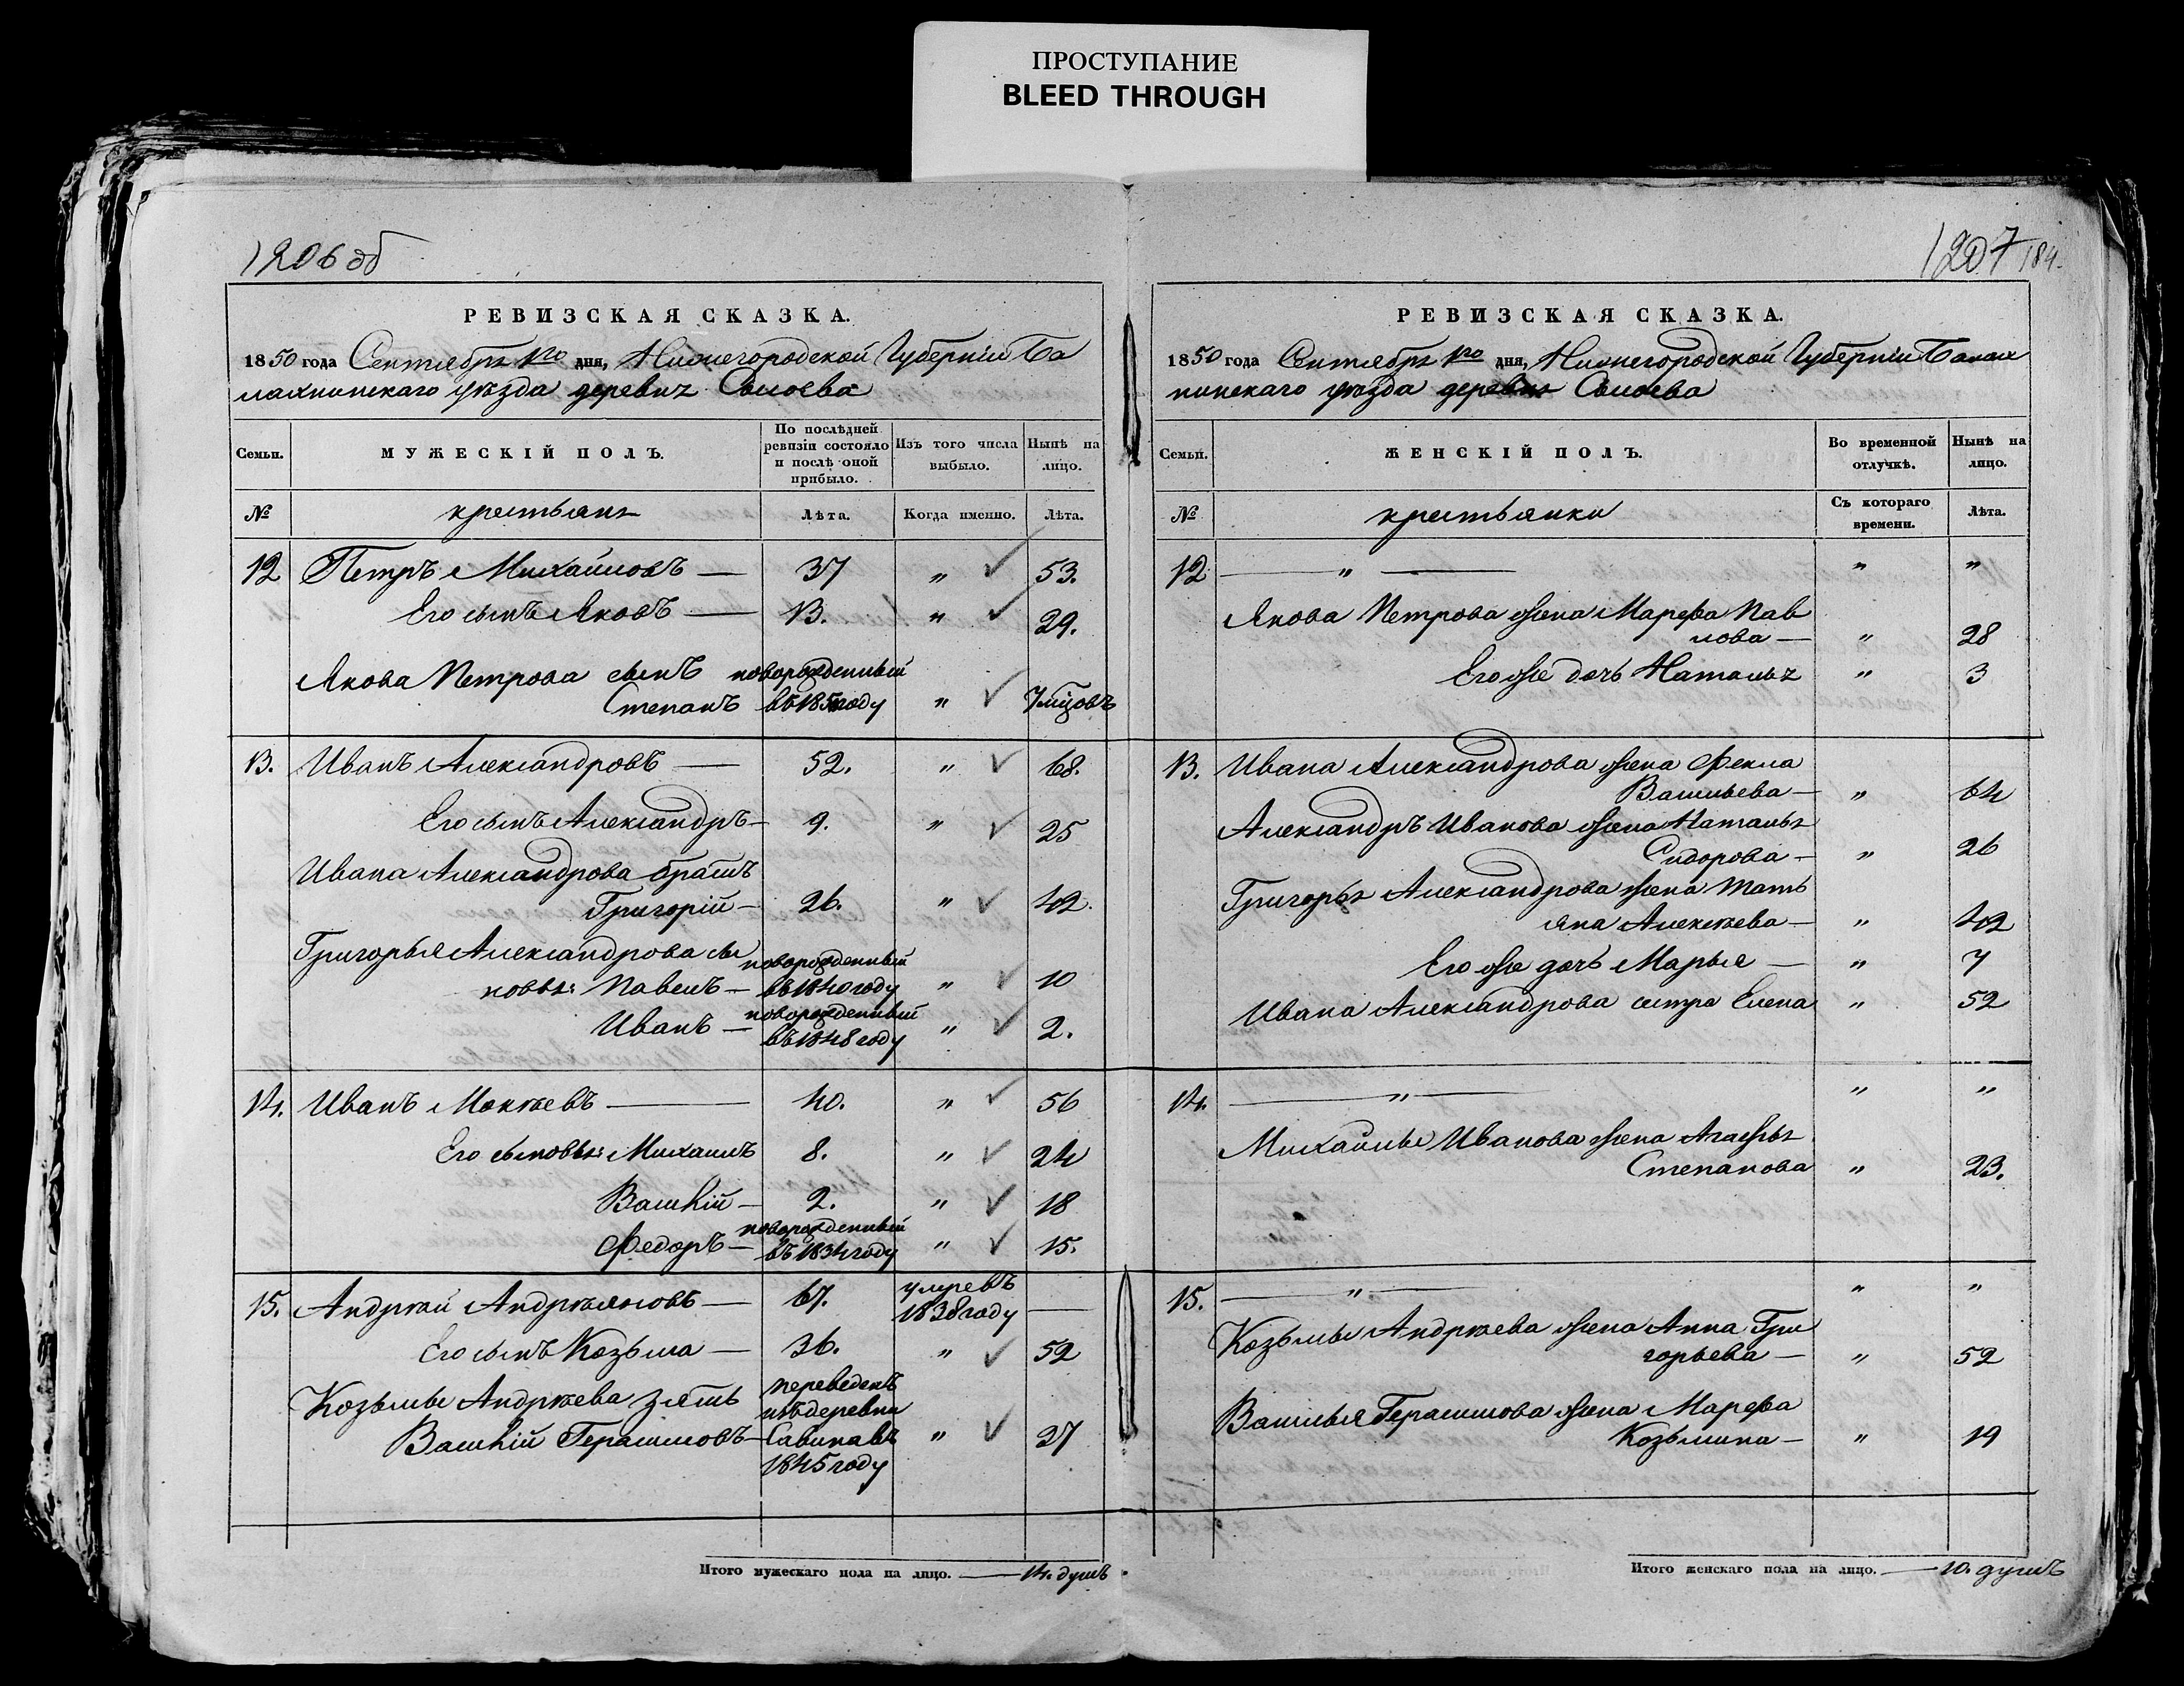 ПРОСТУПАНИЕ
BLEED THROUGH
1206 об
РЕВИЗСКАЯ СКАЗКА.
1850 года Сентября 1го дня, Нижегородской Губерніи Ба
лахнинскаго уѣзда деревни
Семьи.
МУЖЕСКІЙ ПОЛЪ.
По послѣдней
ревизіи состояло
и послѣ оной
прибыло.
Изъ того числа
выбыло.
Нынѣ на
лицо.
№
крестьяня
Лѣта.
Когда именно.
Лѣта.
12 Петръ Михайловъ — 37 " 53.
Его сынъ Яковъ — 13. " 29.
Якова Петрова сынъ новорожденный
Степанъ въ 1850 году " 7 мѣцовъ
13. Иванъ Александровъ — 52. " 68.
Его сынъ Александръ — 9. " 25
Ивана Александрова братъ
Григорій — 26. " 42.
Григорья Александрова сы новорожденный
новья: Павелъ — въ 1840 году " 10
Иванъ — новорожденный
въ 1848 году " 2.
14. Иванъ Мокѣевъ — 40. " 56
Его сыновья: Михаилъ 8. " 24
Василій — 2. " 18
Федоръ — новорожденный
въ 1834 году " 15.
15. Андрѣй Андрѣяновъ — 67. умревъ
1838 году —
Его сынъ Козьма — 36. " 52
Козьмы Андрѣева зять переведенъ
изъ деревни
Василій Герасимовъ — Савина въ " 37
1845 году
Итого мужескаго пола на лицо. — 14. душъ
1207 184.
РЕВИЗСКАЯ СКАЗКА.
1850 года Сентября 1го дня, Нижегородской Губерніи Балах
нинскаго уѣзда деревня
Семьи.
ЖЕНСКІЙ ПОЛЪ.
Во временной
отлучкѣ.
Нынѣ на
лицо.
№
крестьянки
Съ котораго
времени.
Лѣта.
12 — " — " "
Якова Петрова жена Марефа Пав
лова — " 28
Его же дочь Наталья " 3
13. Ивана Александрова жена Фекла
Васильева — " 64
Александръ Иванова жена Наталья
Сидорова — " 26
Григорья Александрова жена Тать
яна Алексѣева — " 42
Его же дочь Марья — " 7
Ивана Александрова сестра Елена " 52
14. — " — " "
Михайлы Иванова жена Агафья
Степанова " 23.
15. — " — " "
Козьмы Андрѣева жена Анна Гри
горьева — " 52
Василья Герасимова жена Марефа
Козьмина — " 19
Итого женскаго пола на лицо. — 10. душъ